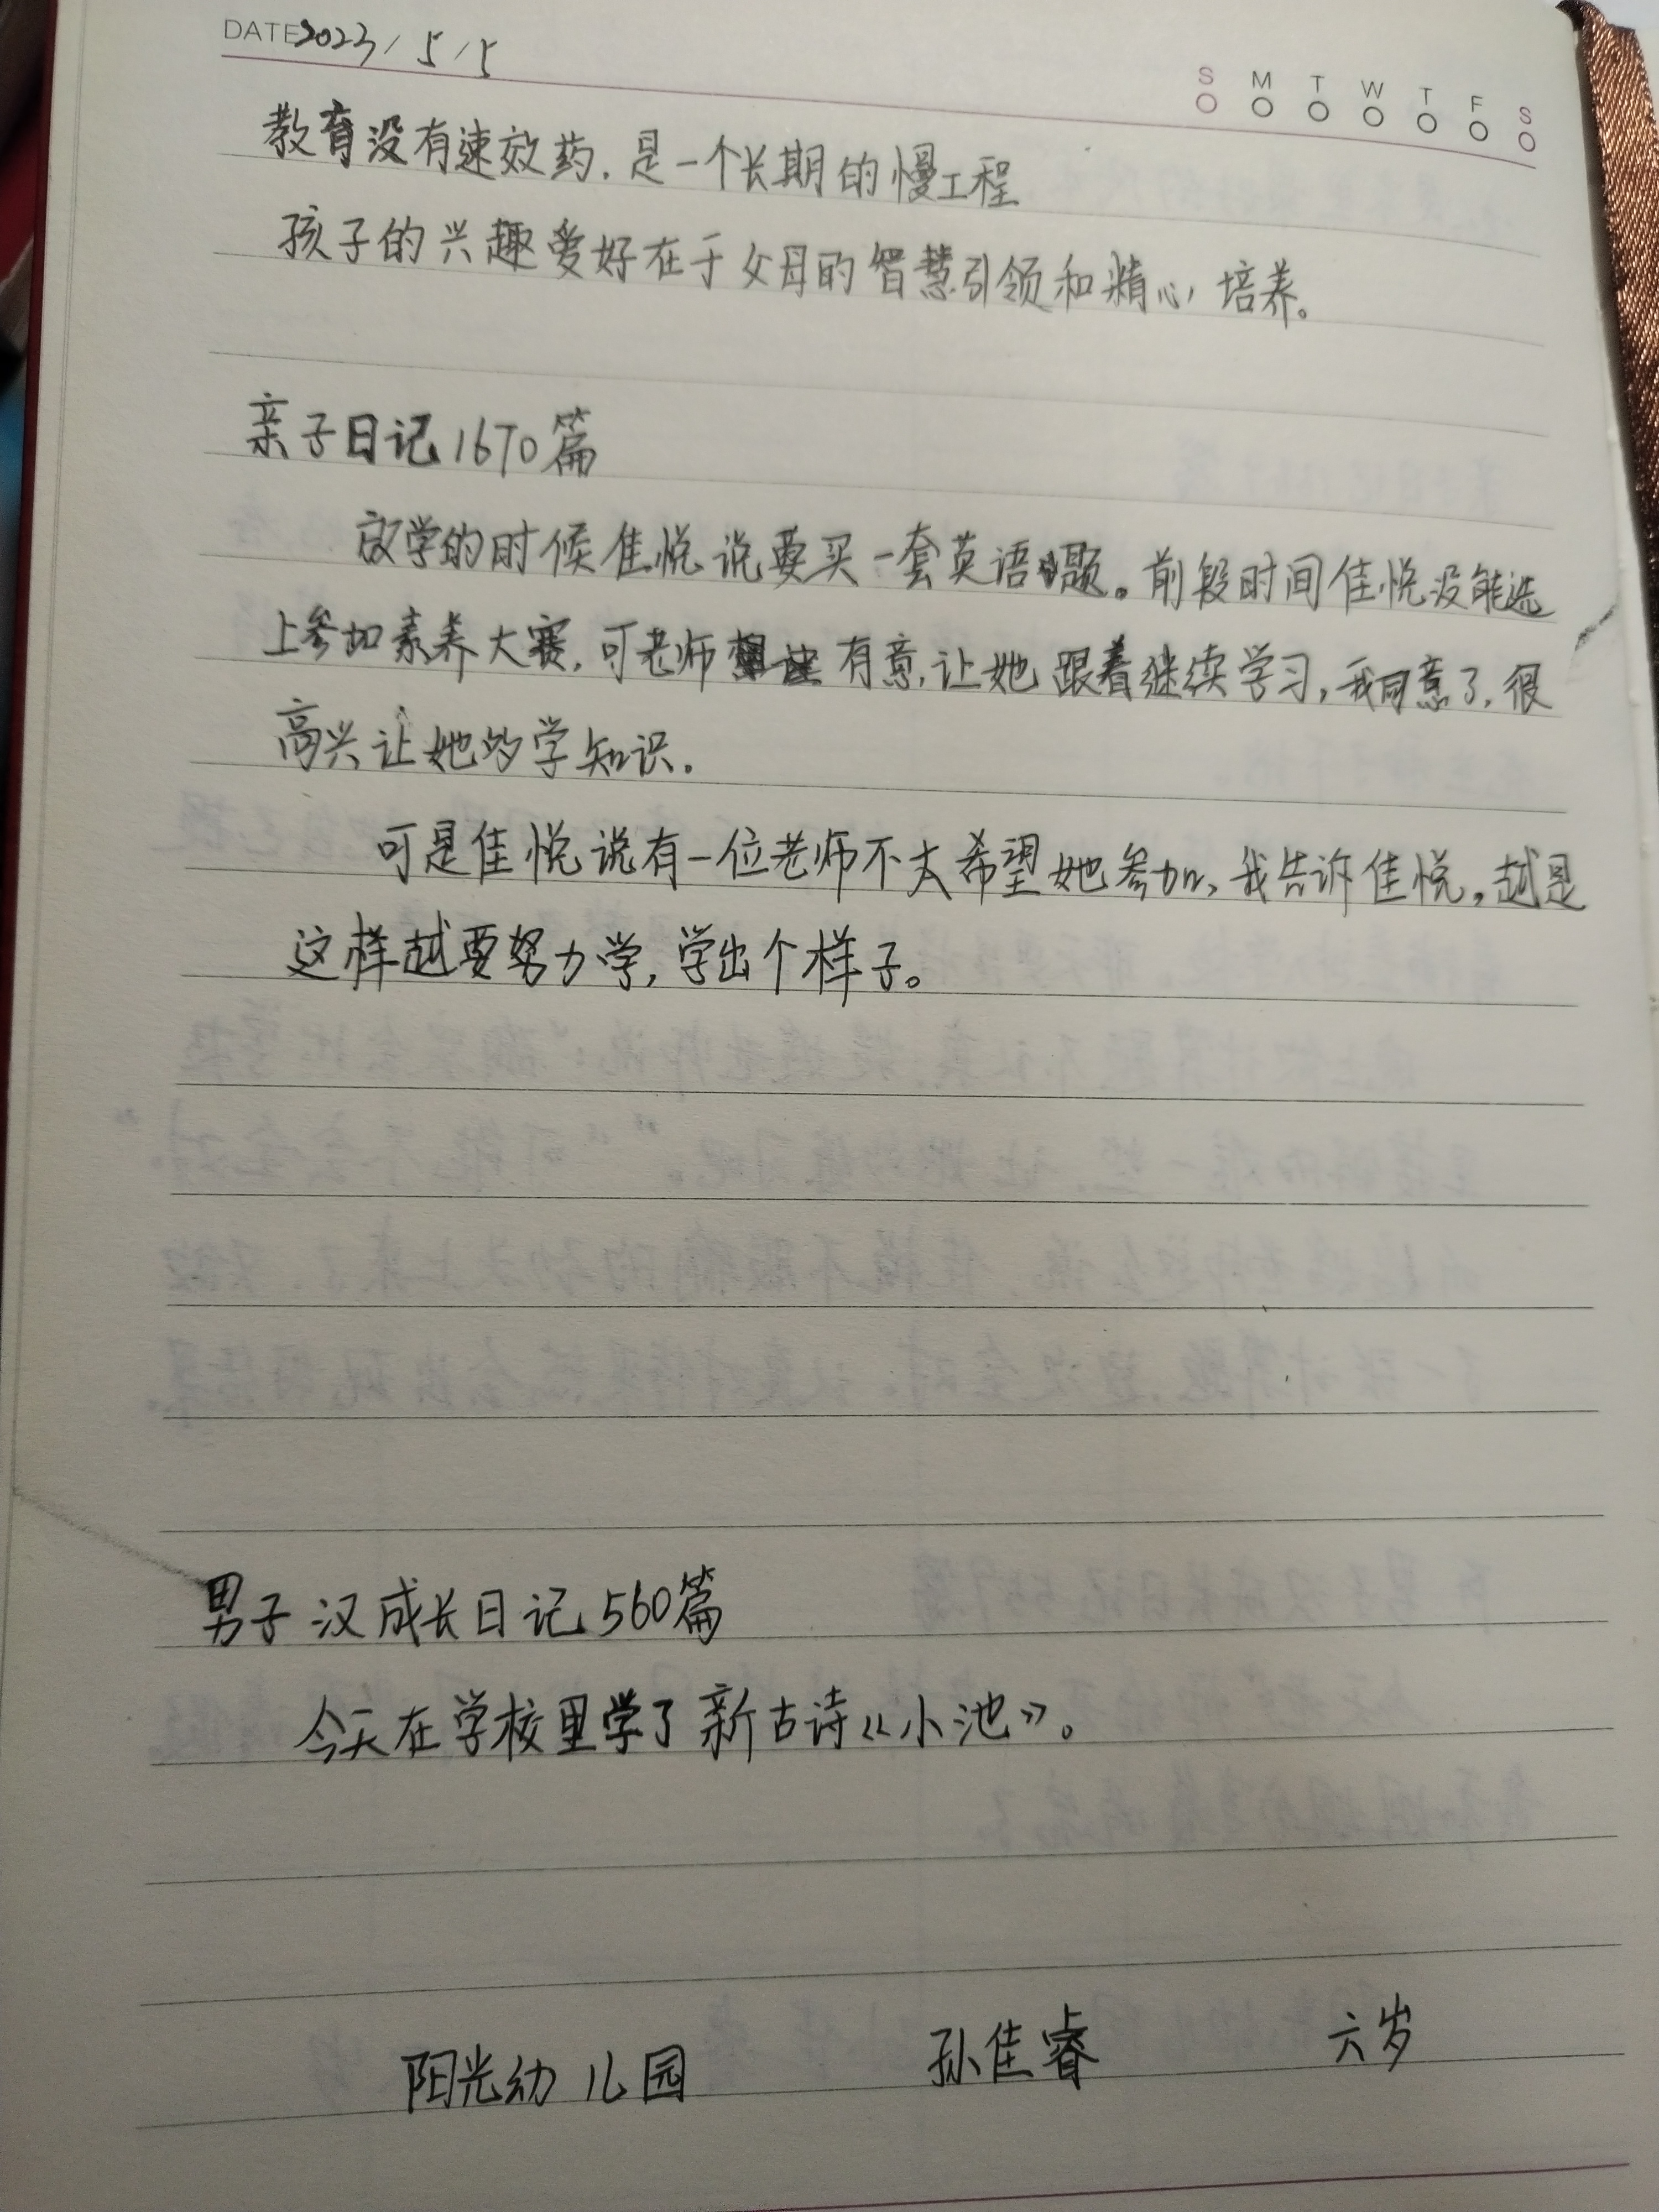 DATE 2023/5/5
S M T W T F S
教育没有速效药.是一个长期的慢工程
孩子的兴趣爱好在于父母的智慧引领和精心培养。
亲子日记1670篇
放学的时候佳悦说要买一套英语题。前段时间佳悦没能选
上参加素养大赛,可老师有意,让她跟着继续学习,我同意了,很
高兴让她的学知识.
可是佳悦说有一位老师不太希望她参加,我告诉佳悦,越是
这样越要努力学,学出个样子。
男子汉成长日记560篇
今天在学校里学了新古诗《小池》。
阳光幼儿园 孙佳睿 六岁